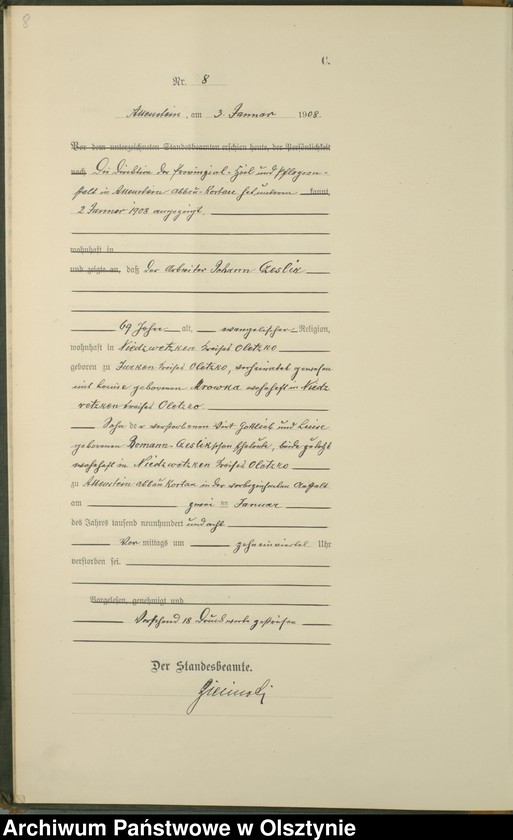 8
C.
Nr. 8
Allenstein, am 3. Januar 1908.
Vor dem unterzeichneten Standesbeamten erschien heute, der Persönlichkeit
nach Die Direktion der Provinzial-Heil und Pflegean-
stalt in Allenstein abbau-Kortau hat unterm kannt,
2 Januar 1908 angezeigt.
wohnhaft in
und zeigte an, daß der Arbeiter Johann Czeslik
69 Jahre alt, evangelischer Religion,
wohnhaft in Niedzwetzken Kreises Oletzko
geboren zu Jurken Kreises Oletzko, verheiratet gewesen
mit Louise geborenen Mrowka wohnhaft in Niedz
wetzken Kreises Oletzko
Sohn der verstorbenen Wirt Gottlieb und Luise
geborenen Czeslikschen Eheleute, beide zuletzt
wohnhaft in Niedzwetzken Kreises Oletzko
zu Allenstein abbau Kortau in der vorbezeichneten Anstalt
am zwei ten Januar
des Jahres tausend neunhundert und acht
Vor mittags um zehneinviertel Uhr
verstorben sei.
Vorgelesen, genehmigt und
Vorstehend 18 Druckworte gestrichen
Der Standesbeamte.
Archiwum Państwowe w Olsztynie